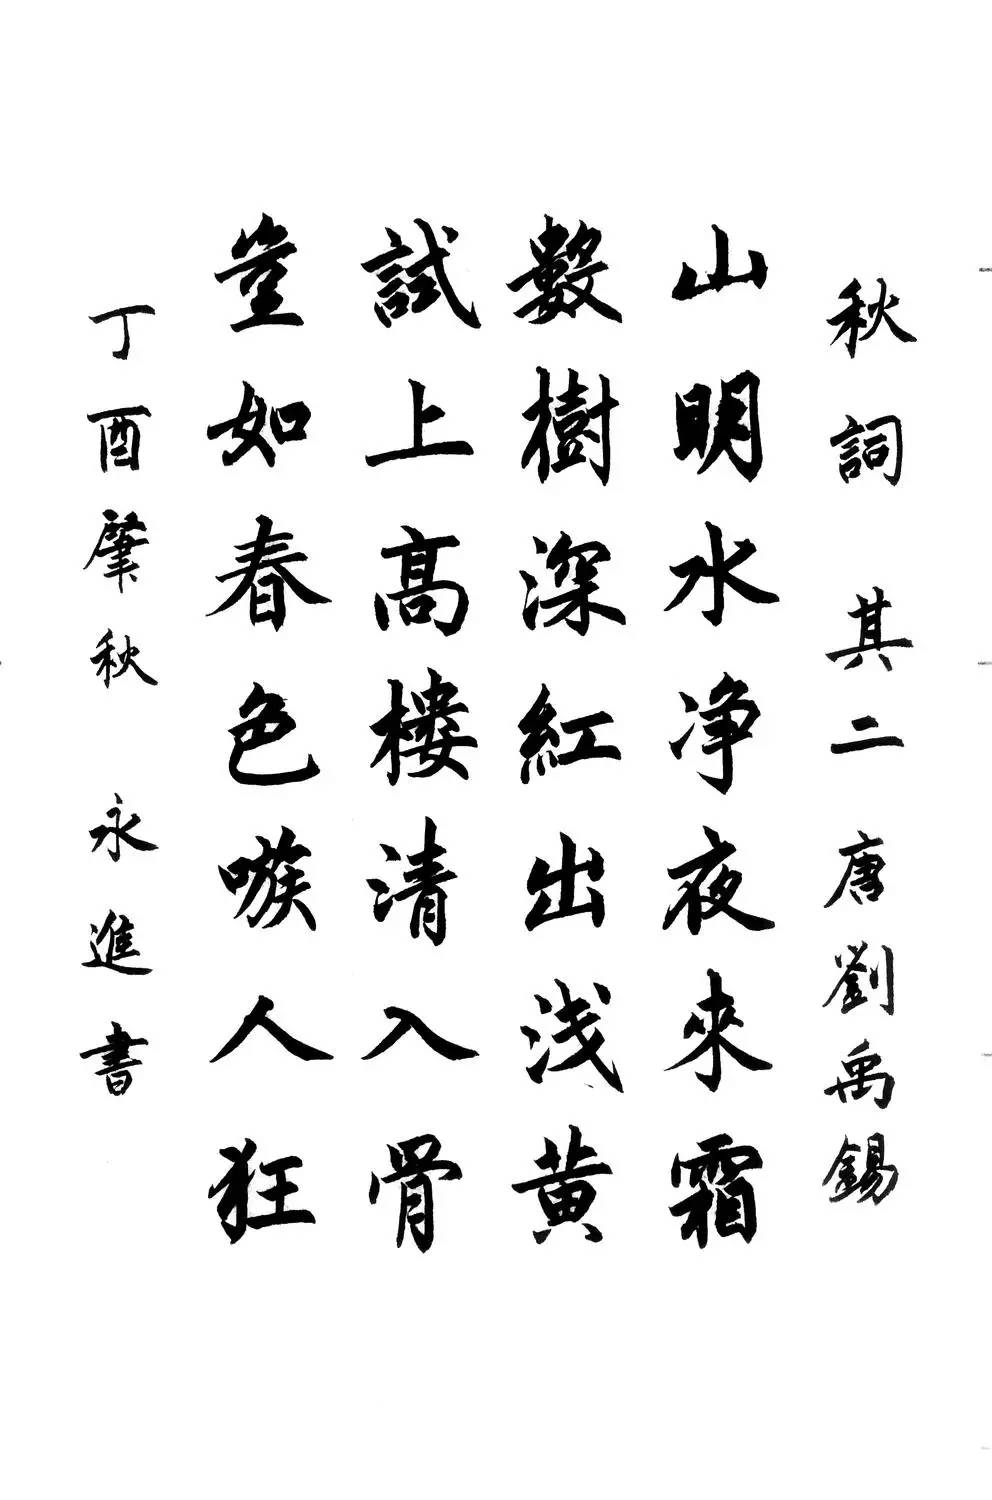 秋詞 其二 唐 劉禹錫
山明水净夜來霜
數樹深紅出浅黄
試上高樓清入骨
豈如春色嗾人狂
丁酉肇秋 永進書